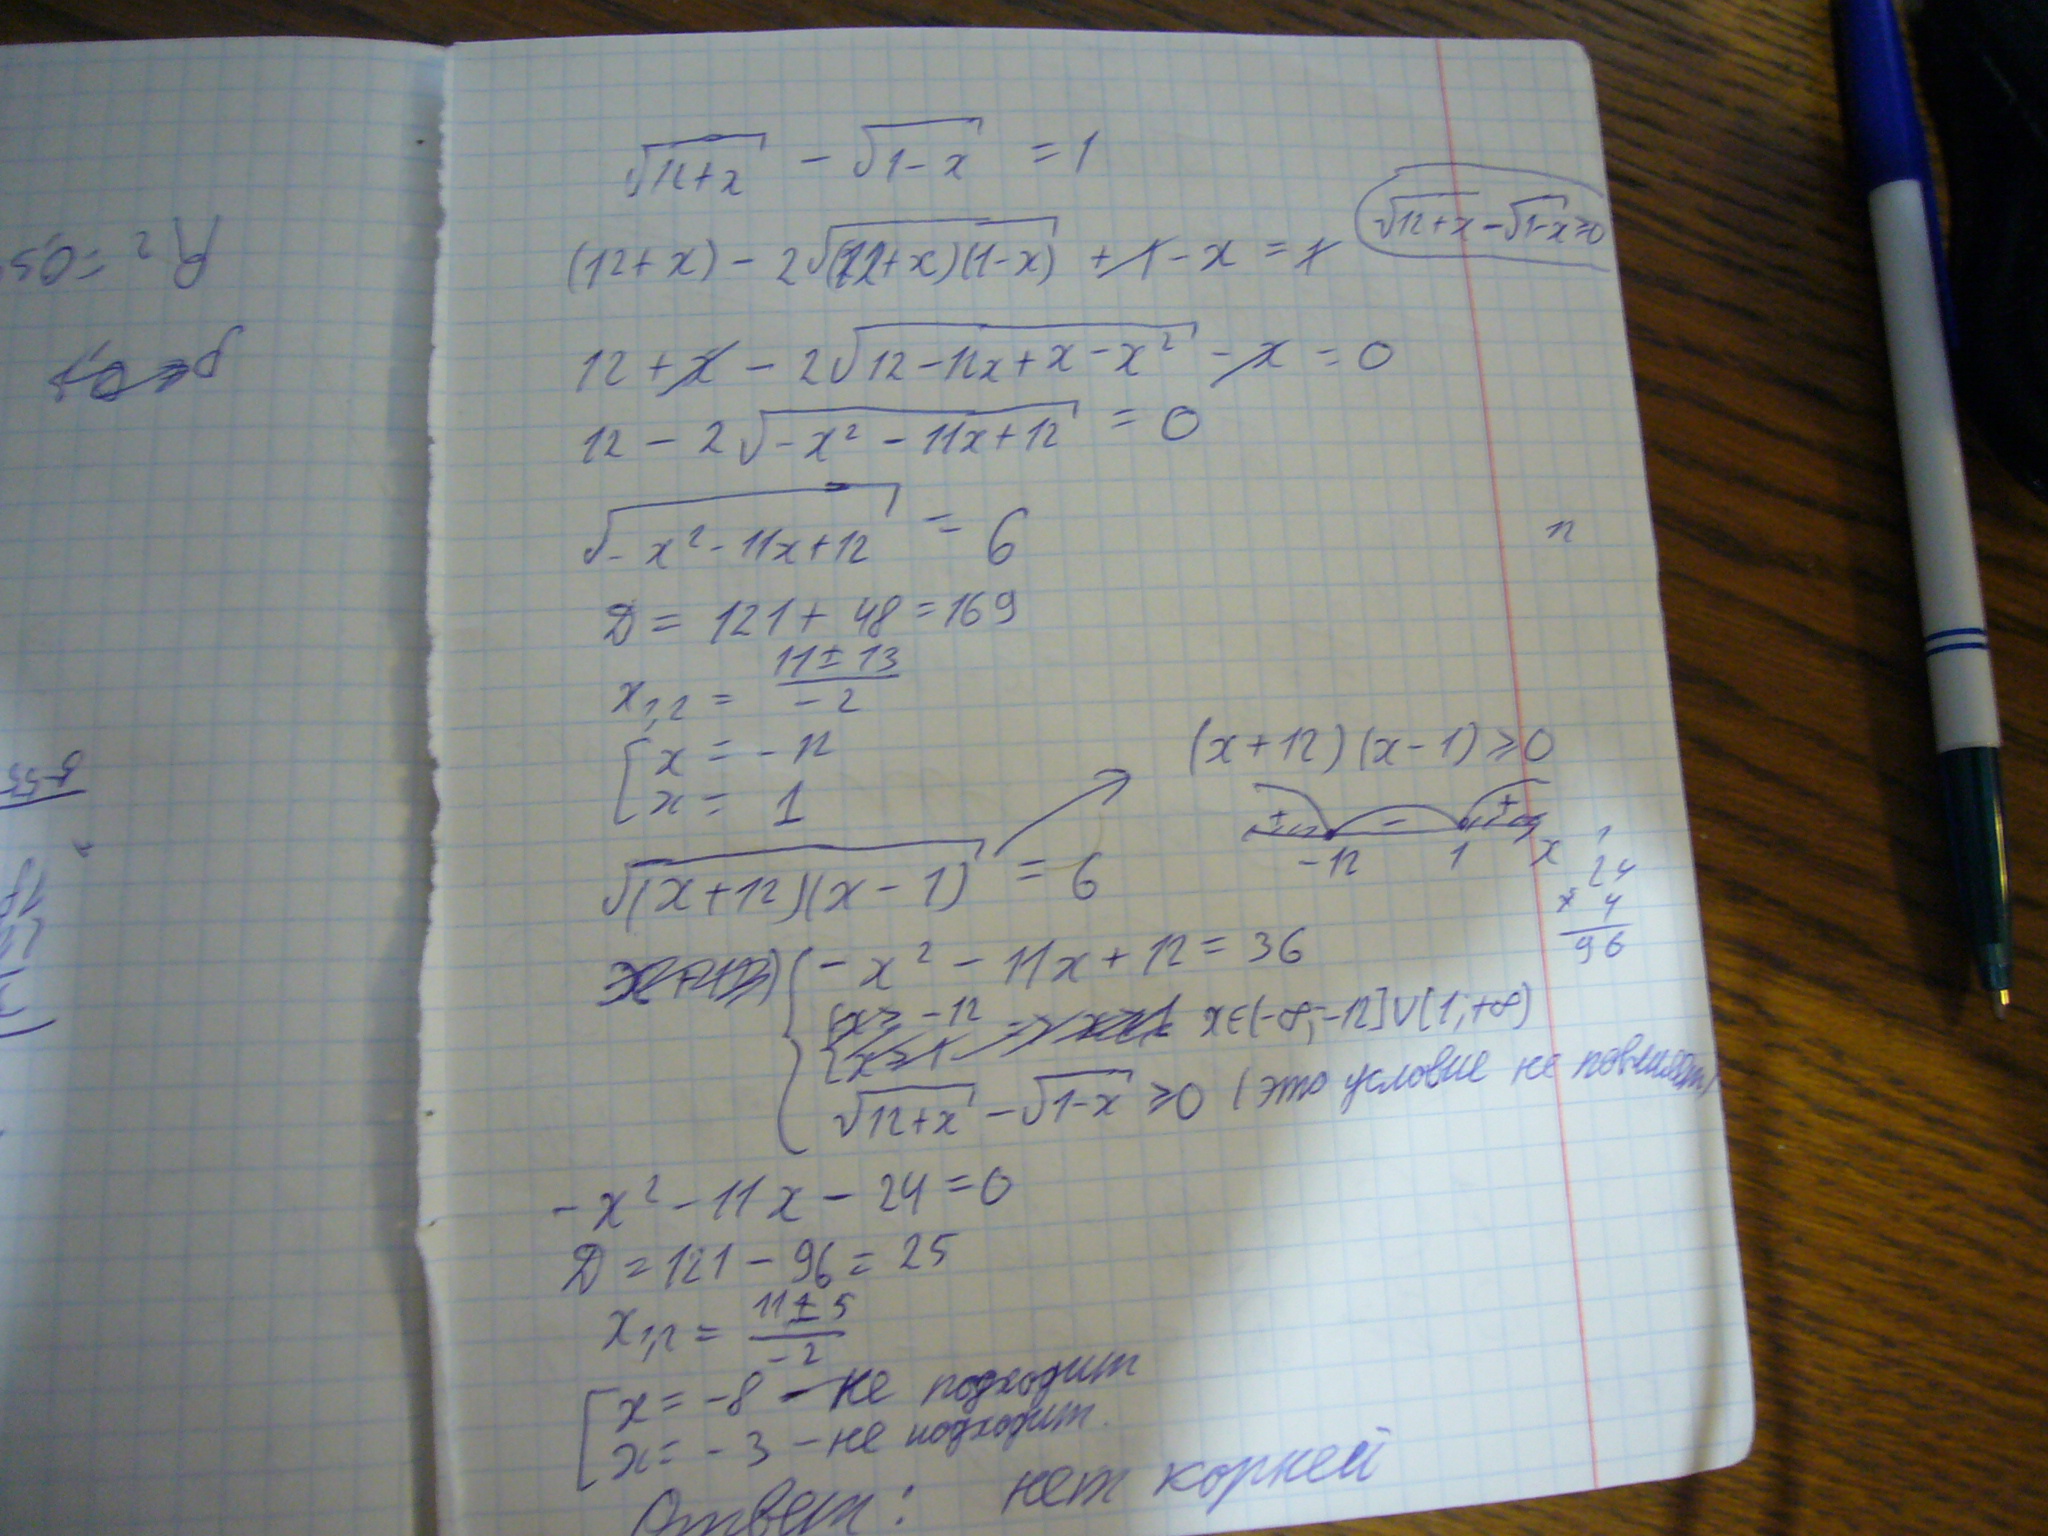 √(12+x) − √(1−x) = 1
(12+x) − 2√((12+x)(1−x)) + 1 − x = 1
√(12+x) − √(1−x) ≥ 0
12 + x − 2√(12−12x+x−x²) − x = 0
12 − 2√(−x² − 11x + 12) = 0
√(−x² − 11x + 12) = 6
12
D = 121 + 48 = 169
x₁,₂ = (11 ± 13)/(−2)
[ x = −12
x = 1
(x+12)(x−1) ≥ 0
+ − +
−12 1 x
√((x+12)(x−1)) = 6
24
× 4
96
{ −x² − 11x + 12 = 36
x ∈ (−∞; −12] ∪ [1; +∞)
√(12+x) − √(1−x) ≥ 0 (это условие не повлияет)
−x² − 11x − 24 = 0
D = 121 − 96 = 25
x₁,₂ = (11 ± 5)/(−2)
[ x = −8 − не подходит
x = −3 − не подходит.
Ответ: нет корней
R² = 0,9